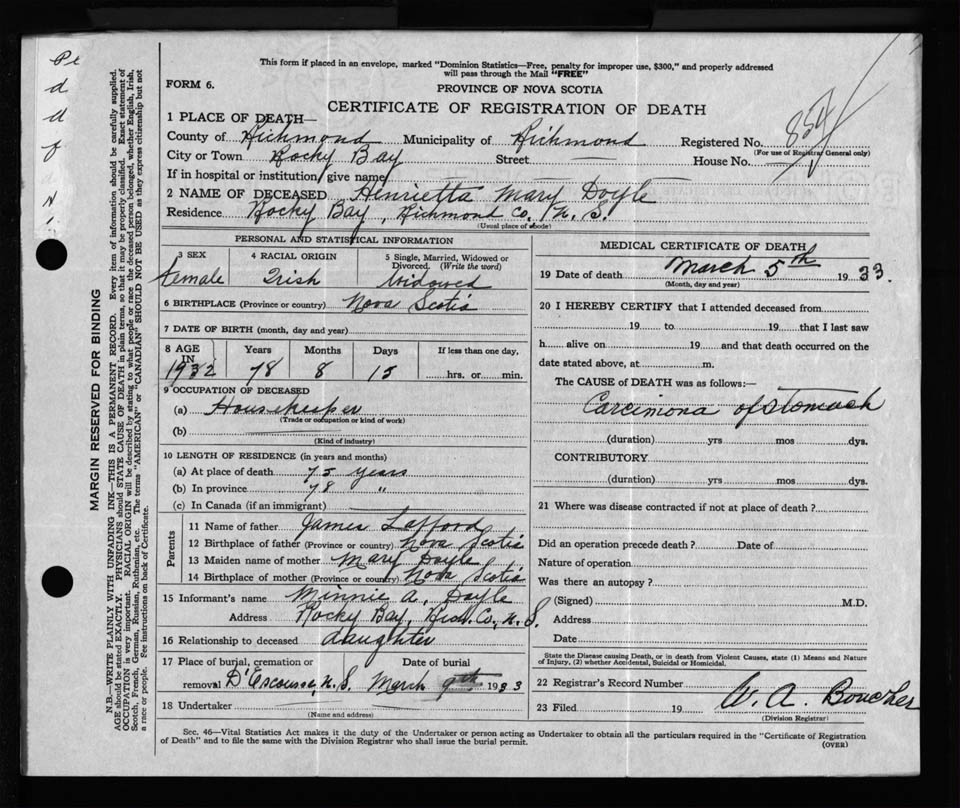 This form if placed in an envelope, marked "Dominion Statistics—Free, penalty for improper use, $300," and properly addressed
will pass through the Mail "FREE"
FORM 6.
PROVINCE OF NOVA SCOTIA
CERTIFICATE OF REGISTRATION OF DEATH
1 PLACE OF DEATH—
County of Richmond Municipality of Richmond Registered No. 854
(For use of Registrar General only)
City or Town Rocky Bay Street — House No.
If in hospital or institution, give name
2 NAME OF DECEASED Henrietta Mary Doyle
Residence Rocky Bay, Richmond Co, N. S.
(Usual place of abode)
PERSONAL AND STATISTICAL INFORMATION
3 SEX
Female
4 RACIAL ORIGIN
Irish
5 Single, Married, Widowed or
Divorced. (Write the word)
Widowed
6 BIRTHPLACE (Province or country) Nova Scotia
7 DATE OF BIRTH (month, day and year)
8 AGE IN 1932
Years Months Days If less than one day.
78 8 15 hrs. or min.
9 OCCUPATION OF DECEASED
(a) Housekeeper
(Trade or occupation or kind of work)
(b)
(Kind of industry)
10 LENGTH OF RESIDENCE (in years and months)
(a) At place of death 75 years
(b) In province 78 "
(c) In Canada (if an immigrant)
Parents
11 Name of father James Lafford
12 Birthplace of father (Province or country) Nova Scotia
13 Maiden name of mother Mary Doyle
14 Birthplace of mother (Province or country) Nova Scotia
15 Informant's name Minnie A. Doyle
Address Rocky Bay, Rich. Co, N. S.
16 Relationship to deceased daughter
17 Place of burial, cremation or Date of burial
removal D'Escousse, N. S. March 9th 1933
18 Undertaker
(Name and address)
MEDICAL CERTIFICATE OF DEATH
19 Date of death March 5th 1933.
(Month, day and year)
20 I HEREBY CERTIFY that I attended deceased from
19 to 19 that I last saw
h alive on 19 and that death occurred on the
date stated above, at m.
The CAUSE of DEATH was as follows:
Carcimona of stomach
(duration) yrs mos dys.
CONTRIBUTORY
(duration) yrs mos dys.
21 Where was disease contracted if not at place of death?
Did an operation precede death? Date of
Nature of operation
Was there an autopsy?
(Signed) M.D.
Address
Date
State the Disease causing Death, or in death from Violent Causes, state (1) Means and Nature
of Injury, (2) whether Accidental, Suicidal or Homicidal.
22 Registrar's Record Number
23 Filed 19 W. A. Boucher
(Division Registrar)
Sec. 46—Vital Statistics Act makes it the duty of the Undertaker or person acting as Undertaker to obtain all the particulars required in the "Certificate of Registration
of Death" and to file the same with the Division Registrar who shall issue the burial permit.
(OVER)
MARGIN RESERVED FOR BINDING
N.B.—WRITE PLAINLY WITH UNFADING INK—THIS IS A PERMANENT RECORD. Every item of information should be carefully supplied.
AGE should be stated EXACTLY. PHYSICIANS should STATE CAUSE OF DEATH in plain terms, so that it may be properly classified. Exact statement of
OCCUPATION is very important. RACIAL ORIGIN will be described by stating to what people or race the deceased person belonged, whether English, Irish,
Scotch, French, German, Russian, Ruthenian, etc. The terms "AMERICAN" or "CANADIAN" SHOULD NOT BE USED as they express citizenship but not
a race or people. See instructions on back of Certificate.